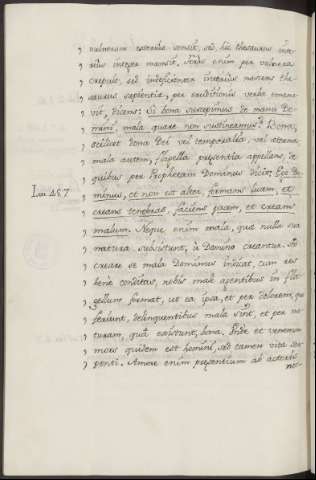 , vulnerum extralia sensit, sed hic thesaurus inte-
, rius integer mansit. Foras enim per vulnera
, crepuit, sed indeficienter interius nascens the-
, saurus sapientiæ, per eruditionis verba emana-
, vit, dicens: Si bona suscepimus de manu Do-
, mini, mala quare non sustineamus? Bona,
, scilicet dona Dei vel temporalia, vel æterna;
, mala autem, flagella præsentia appellans, de
, quibus per Prophetam Dominus dicit: Ego Do-
Isai. 45. 7 , minus, et non est alter, formans lucem, et
, creans tenebras, faciens pacem, et creans
, malum. Neque enim mala, quæ nulla sua
, natura subsistunt, à Domino creantur. Sed
, creare se mala Dominus indicat, cum res
, benè conditas, nobis malè agentibus in fla-
, gellum format, ut ea ipsa, et per dolorem, quo
, feriunt, delinquentibus mala sint, et per na-
, turam, quâ existunt, bona. Unde et venenum
, mors quidem est homini, sed tamen vita ser-
, penti. Amore enim præsentium ab auctoris
nos-